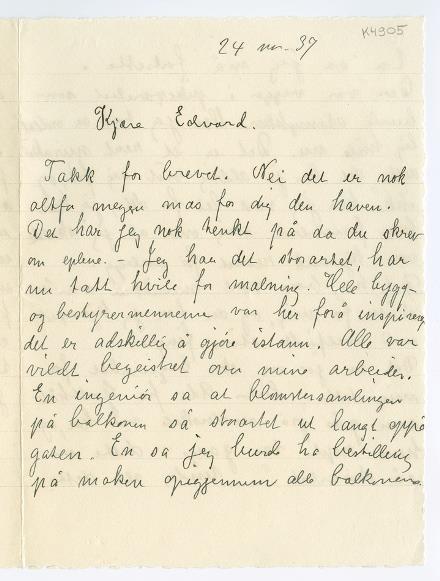 K4905
24 nov. 37
Kjære Edvard.
Takk for brevet. Nei det er nok
altfa megen mas for dig den haven.
Det har jeg nok tenkt på da du skrev
om eplene. – Jeg har det storartet, har
nu tatt hvile for malning. Hele bygg-
og bestyrermennene var her forå inspisere,
det er adskillig å gjöre istann. Alle var
vildt begeistret over mine arbeider.
En ingeniör sa at blomstersamlingen
på balkonen så storartet ut langt oppå
gaten. En sa jeg burde ha bestilling
på maken opigjennem alle balkonene.